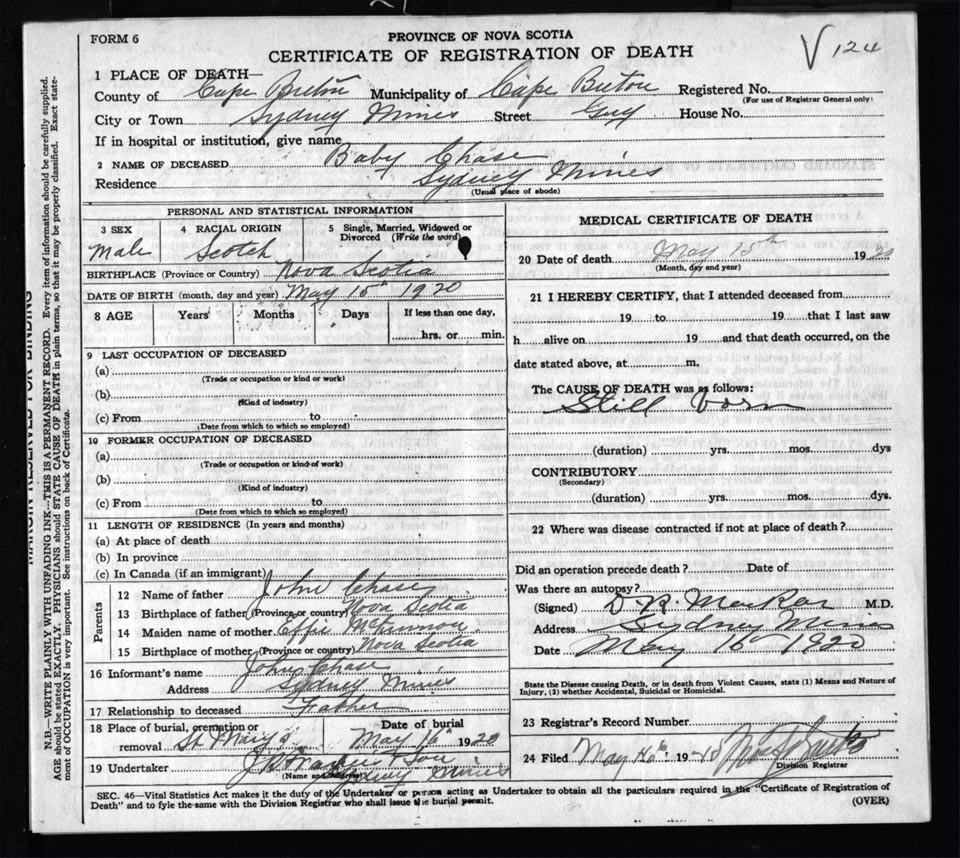 FORM 6
PROVINCE OF NOVA SCOTIA
CERTIFICATE OF REGISTRATION OF DEATH
V 124
1 PLACE OF DEATH—
County of Cape Breton Municipality of Cape Breton Registered No.
(For use of Registrar General only)
City or Town Sydney Mines Street Guy House No.
If in hospital or institution, give name
2 NAME OF DECEASED Baby Chase
Residence Sydney Mines
(Usual place of abode)
PERSONAL AND STATISTICAL INFORMATION
3 SEX 4 RACIAL ORIGIN 5 Single, Married, Widowed or Divorced (Write the word)
Male Scotch
BIRTHPLACE (Province or Country) Nova Scotia
DATE OF BIRTH (month, day and year) May 15th 1920
8 AGE Years Months Days If less than one day,
hrs. or min.
9 LAST OCCUPATION OF DECEASED
(a)
(Trade or occupation or kind or work)
(b)
(Kind of industry)
(c) From to
(Date from which to which so employed)
10 FORMER OCCUPATION OF DECEASED
(a)
(Trade or occupation or kind of work)
(b)
(Kind of industry)
(c) From to
(Date from which to which so employed)
11 LENGTH OF RESIDENCE (In years and months)
(a) At place of death
(b) In province
(c) In Canada (if an immigrant)
Parents
12 Name of father John Chase
13 Birthplace of father (Province or country) Nova Scotia
14 Maiden name of mother Effie McKinnon
15 Birthplace of mother (Province or country) Nova Scotia
16 Informant's name John Chase
Address Sydney Mines
17 Relationship to deceased Father
18 Place of burial, cremation or removal St Mary's Date of burial May 16th 1920
19 Undertaker Son
(Name and address) Sydney Mines
MEDICAL CERTIFICATE OF DEATH
20 Date of death May 15th 1920
(Month, day and year)
21 I HEREBY CERTIFY, that I attended deceased from
19 to 19 that I last saw
h alive on 19 and that death occurred, on the
date stated above, at m.
The CAUSE OF DEATH was as follows:
Still born
(duration) yrs. mos. dys
CONTRIBUTORY
(Secondary)
(duration) yrs. mos. dys.
22 Where was disease contracted if not at place of death?
Did an operation precede death? Date of
Was there an autopsy?
(Signed) D. R. M.D.
Address Sydney Mines
Date May 15th 1920
State the Disease causing Death, or in death from Violent Causes, state (1) Means and Nature of
Injury, (2) whether Accidental, Suicidal or Homicidal.
23 Registrar's Record Number
24 Filed May 16th 19
Division Registrar
SEC. 46—Vital Statistics Act makes it the duty of the Undertaker or person acting as Undertaker to obtain all the particulars required in the "Certificate of Registration of
Death" and to fyle the same with the Division Registrar who shall issue the burial permit.
(OVER)
MARGIN RESERVED FOR BINDING
N.B.—WRITE PLAINLY WITH UNFADING INK—THIS IS A PERMANENT RECORD. Every item of information should be carefully supplied.
AGE should be stated EXACTLY. PHYSICIANS should STATE CAUSE OF DEATH in plain terms, so that it may be properly classified. Exact statement of OCCUPATION is very important. See instructions on back of Certificate.